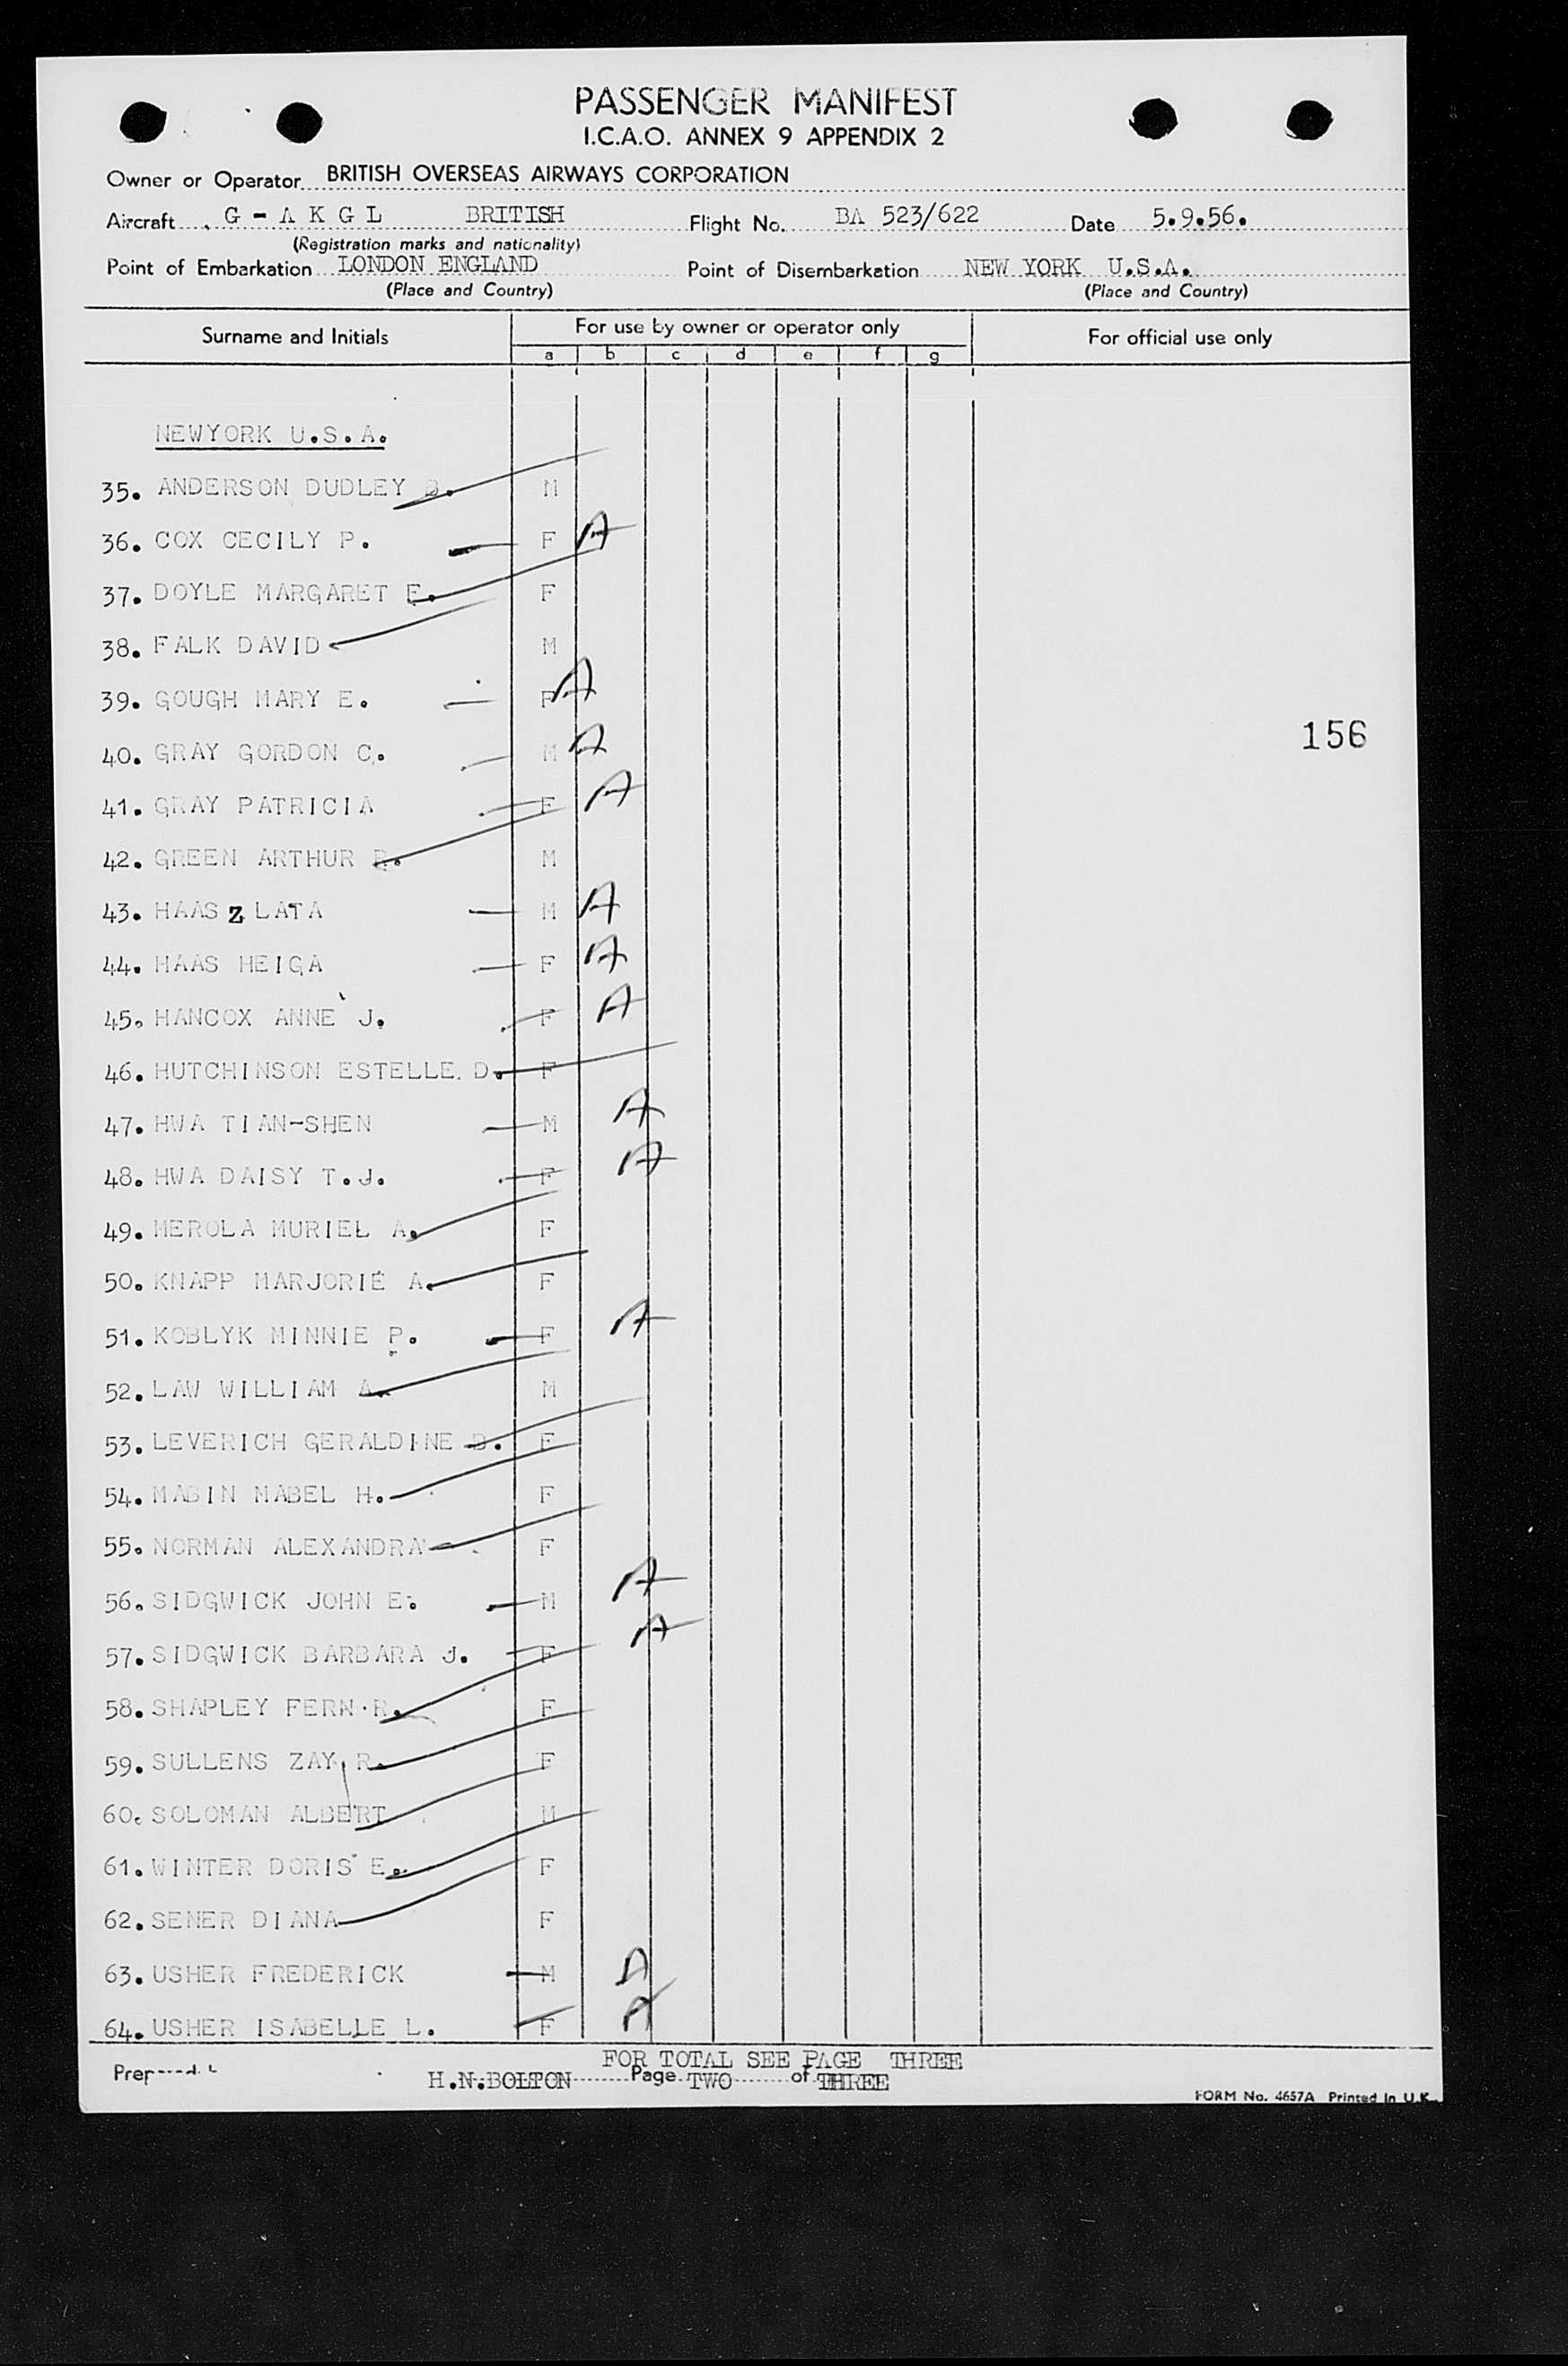 PASSENGER MANIFEST
I.C.A.O. ANNEX 9 APPENDIX 2
Owner or Operator BRITISH OVERSEAS AIRWAYS CORPORATION
Aircraft G - A K G L BRITISH Flight No. BA 523/622 Date 5.9.56.
(Registration marks and nationality)
Point of Embarkation LONDON ENGLAND Point of Disembarkation NEW YORK U.S.A.
(Place and Country) (Place and Country)
Surname and Initials For use by owner or operator only For official use only
a b c d e f g
NEWYORK U.S.A.
35. ANDERSON DUDLEY B. M
36. COX CECILY P. F A
37. DOYLE MARGARET E. F
38. FALK DAVID M
39. GOUGH MARY E. F A
156
40. GRAY GORDON C. M A
41. GRAY PATRICIA F A
42. GREEN ARTHUR R. M
43. HAAS ZLATA M A
44. HAAS HEIGA F A
45. HANCOX ANNE J. F A
46. HUTCHINSON ESTELLE D. F
47. HWA TIAN-SHEN M A
48. HWA DAISY T.J. F A
49. MEROLA MURIEL A. F
50. KNAPP MARJORIE A. F
51. KOBLYK MINNIE P. F A
52. LAW WILLIAM A. M
53. LEVERICH GERALDINE B. F
54. MABIN MABEL H. F
55. NORMAN ALEXANDRA F
56. SIDGWICK JOHN E. M A
57. SIDGWICK BARBARA J. F A
58. SHAPLEY FERN R. F
59. SULLENS ZAY R. F
60. SOLOMAN ALBERT M
61. WINTER DORIS E. F
62. SENER DIANA F
63. USHER FREDERICK M
64. USHER ISABELLE L. F
FOR TOTAL SEE PAGE THREE
H.N.BOLTON Page TWO of THREE
FORM No. 4657A Printed in U.K.